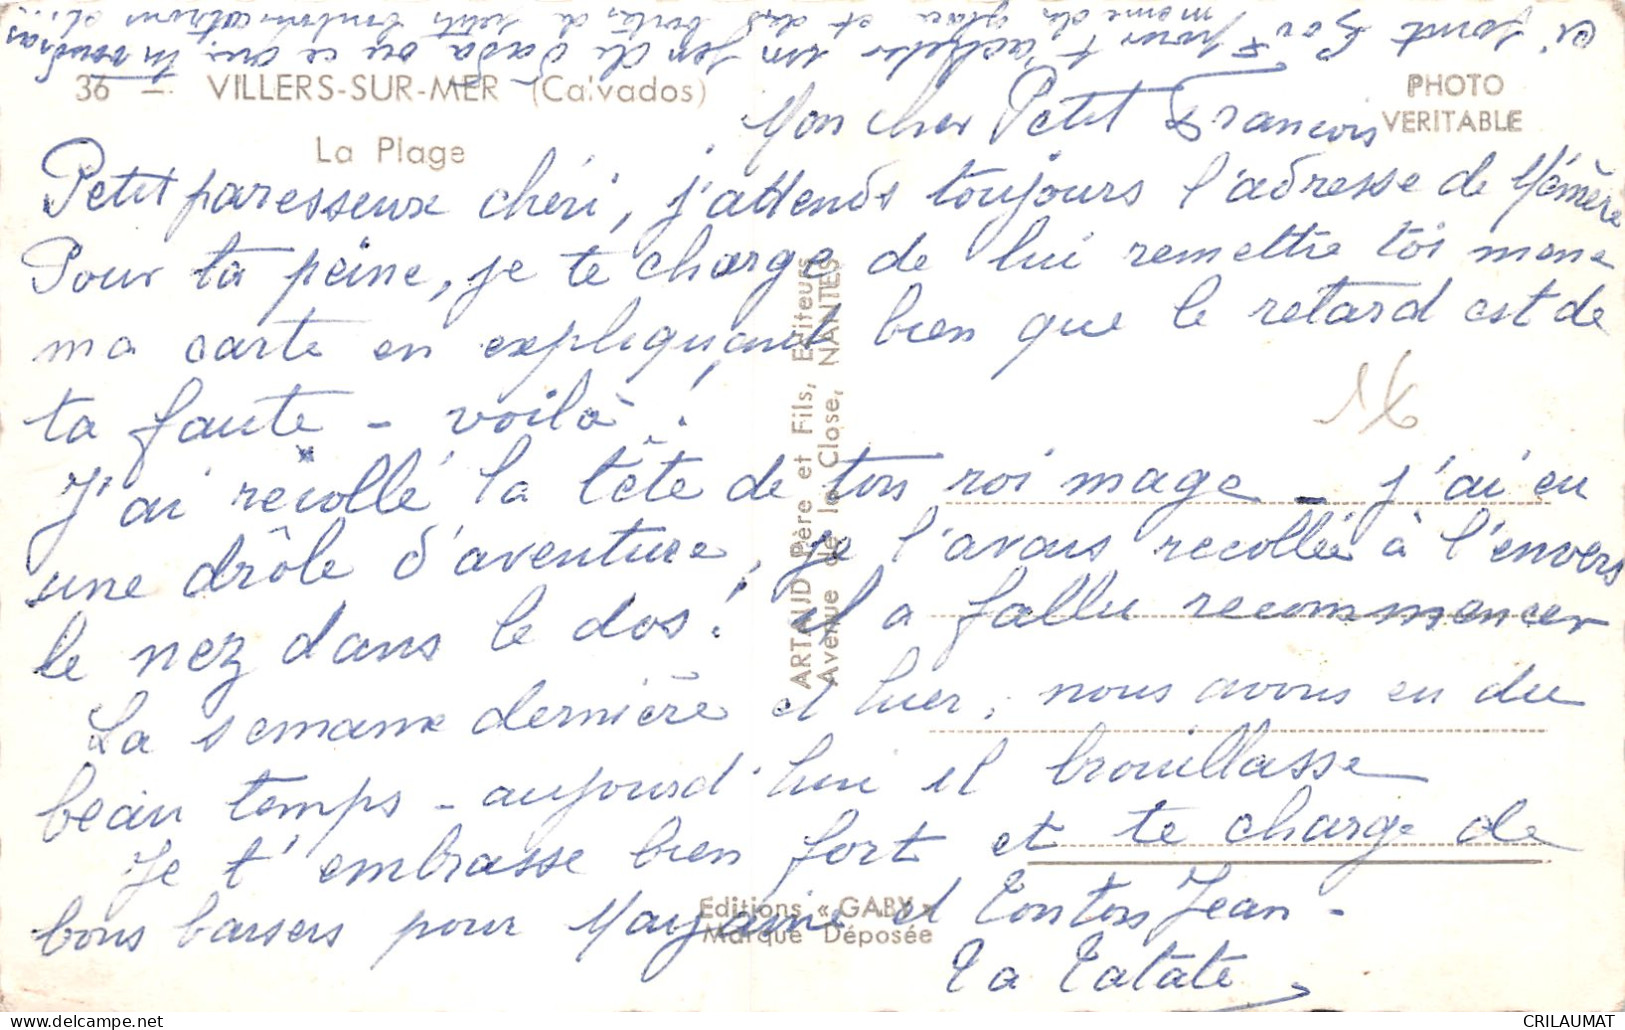 ci joint 500 F pour t'acheter un jeu de dada ou ce que tu voudras
même des glaces et des
36 — VILLERS-SUR-MER (Calvados)
La Plage
PHOTO
VERITABLE
Mon cher Petit François
Petit paresseux chéri, j'attends toujours l'adresse de Mémère
Pour ta peine, je te charge de lui remettre toi même
ma carte en expliquant bien que le retard est de
ta faute - voilà !
J'ai recollé la tête de ton roi mage - j'ai eu
une drôle d'aventure, je l'avais recollée à l'envers
le nez dans le dos ! il a fallu recommencer
La semaine dernière et hier, nous avons eu du
beau temps - aujourd'hui il brouillasse
Je t'embrasse bien fort et te charge de
bons baisers pour et Tonton Jean -
Ta Tatate
ARTAUD Père et Fils, Editeurs
Avenue de la Close, NANTES
Editions « GABY »
Marque Déposée
16
CRILAUMAT